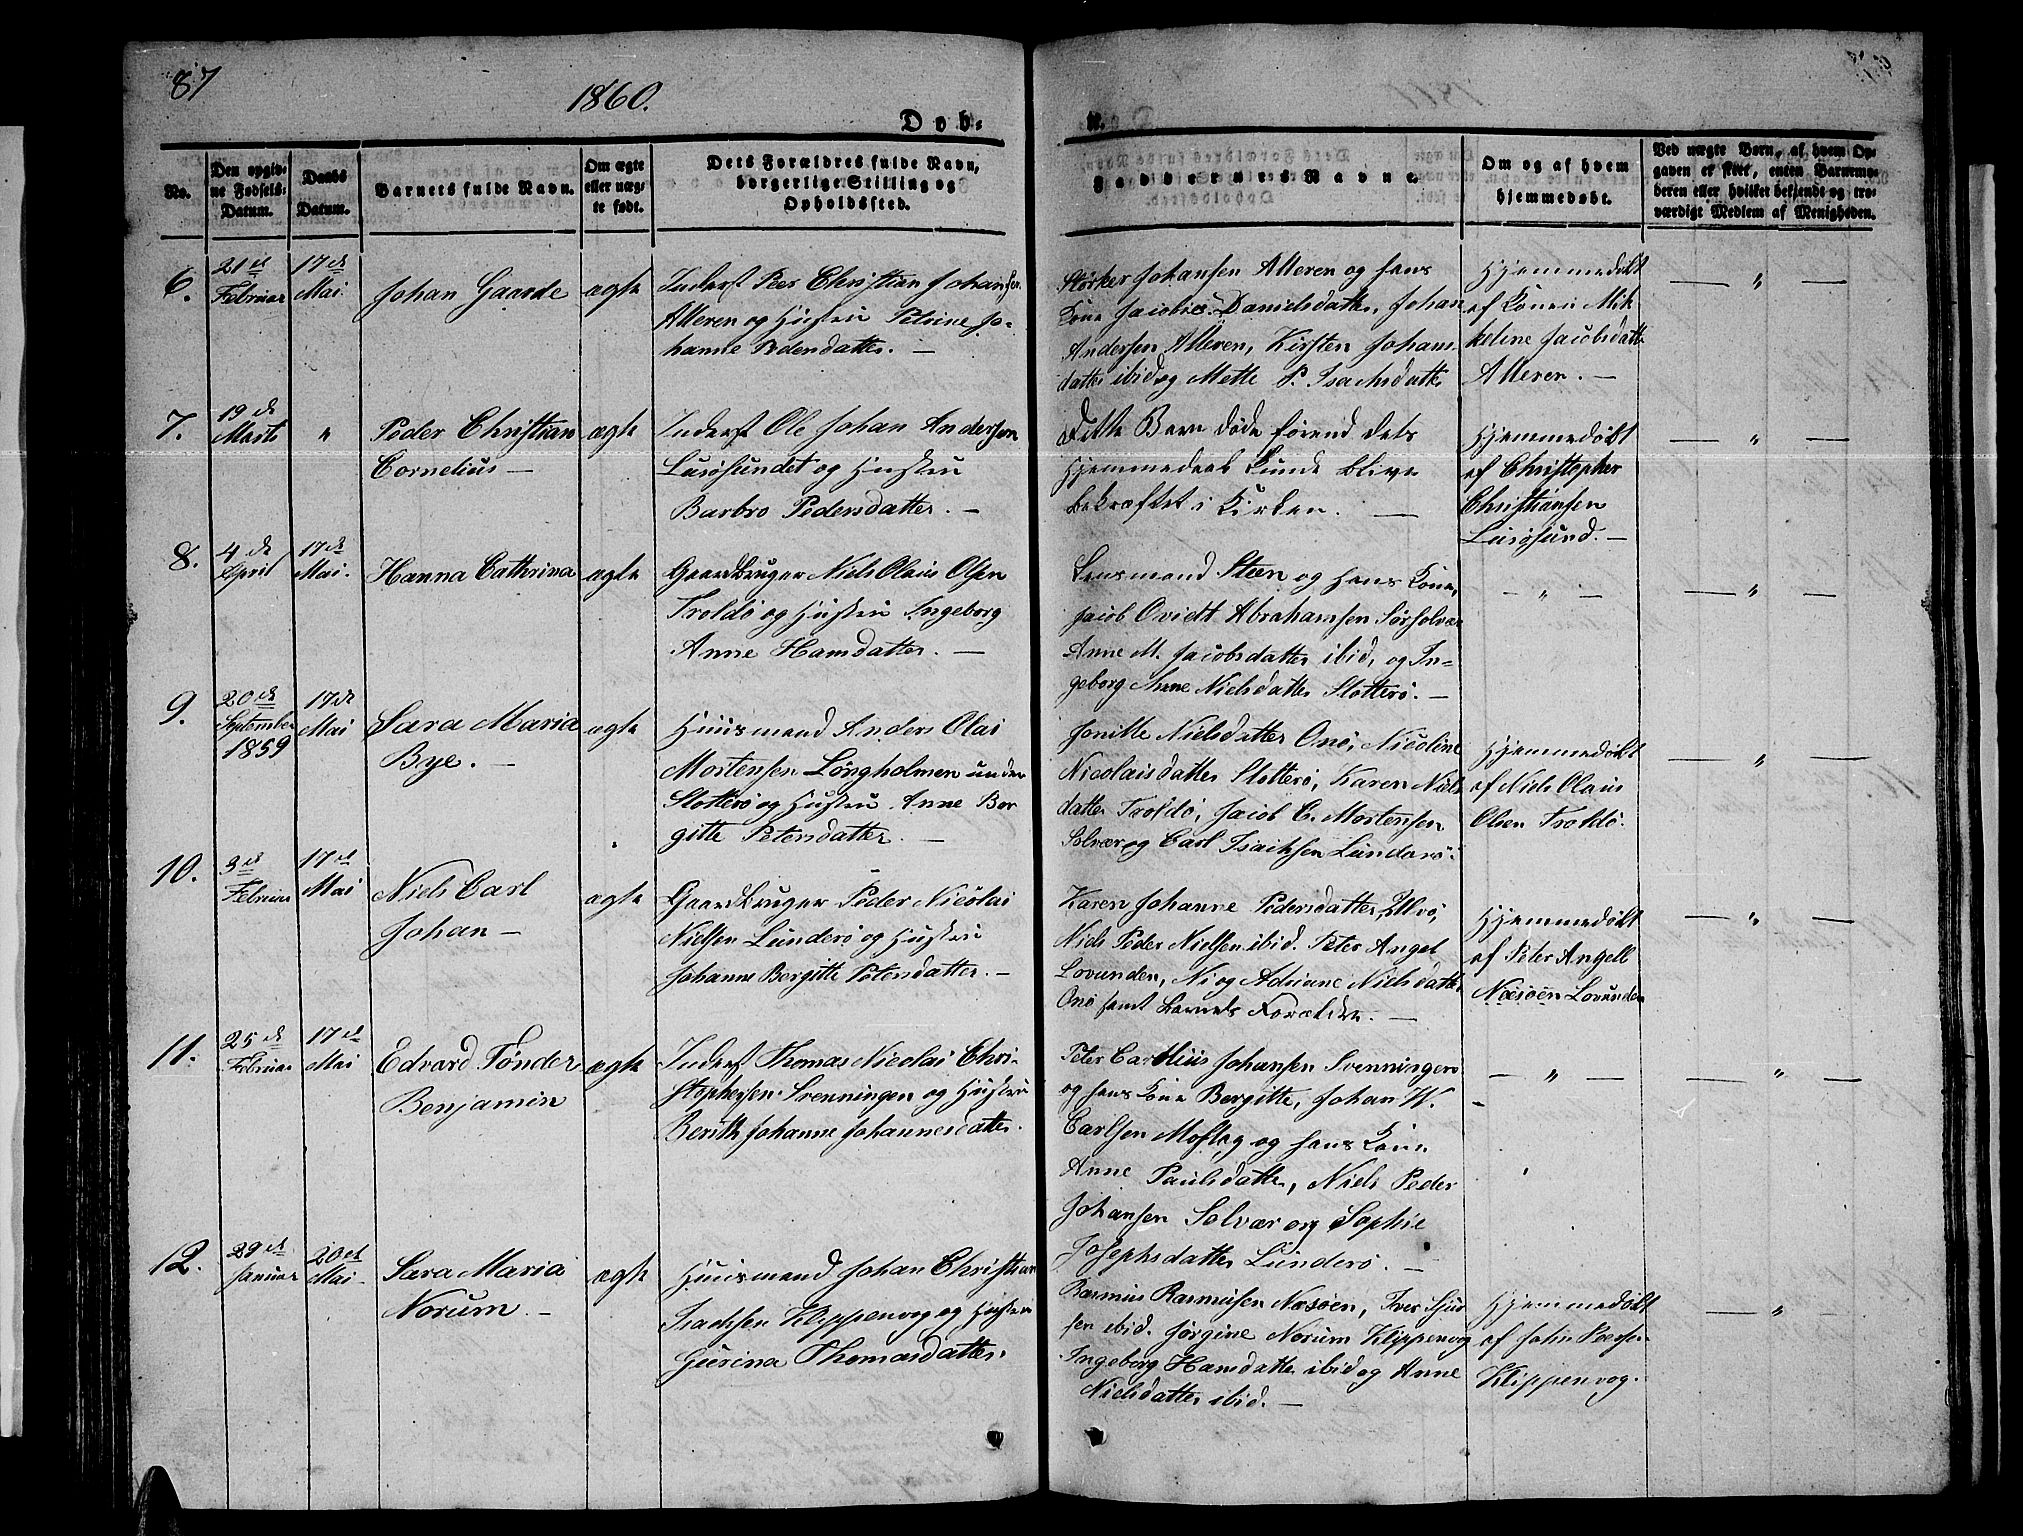 87
1860.
Døb-
te.
No.
Den opgiv-
ne Fødsels-
Datum.
Daabs
Datum.
Barnets fulde Navn.
Om ægte
eller uæg-
te født.
Dets Forældres fulde Navn,
borgerlige Stilling og
Opholdssted.
Faddernes Navne.
Om og af hvem
hjemmedøbt.
Ved uægte Børn, af hvem Op-
gaven er skeet, enten Barnemo-
deren eller hvilket bekjendt og tro-
værdigt Medlem af Menigheden.
6.
21de
Februar
17de
Mai.
Johan Gaarde
ægte
Inderst Peer Christian Johansen
Alteren og Hustru Petrine Jo-
hanne Pedersdatter. —
Størker Johansen Alteren og hans
Kone Jacobie Danielsdatter, Johan
Andersen Alteren, Kirsten Johans
datter ibid og Mette P. Isachsdatter
Hjemmedøbt
af Konen Mik
keline Jacobsdatter
Alteren. —
— " —
7.
19de
Marts
"
Peder Christian
Cornelius —
ægte
Inderst Ole Johan Andersen
Lurøsundet og Hustru
Barbro Pedersdatter. —
Dette Barn døde førend dets
Hjemmedaab kunde blive
bekræftet i Kirken. —
Hjemmedøbt
af Christopher
Christiansen
Lurøsund. —
— " —
8.
4de
April
17de
Mai.
Hanna Cathrina
ægte
Gaardbruger Niels Olaus Olsen
Troldø og Hustru Ingeborg
Anne Hansdatter. —
Lensmand Steen og hans Kone,
Jacob Ovidt Abrahamsen Sørsolvær
Anne M. Jacobsdatter ibid, og In-
geborg Anne Nielsdatter Slotterø. —
— " —
— " —
9.
20de
September
1859
17de
Mai
Sara Maria
Bye. —
ægte
Huusmand Anders Olai
Mortensen Longholmen under
Slotterø og Hustru Anne Ber
gitte Petersdatter. —
Jonitte Nielsdatter Onø, Nicoline
Nicolaisdatter Slotterø, Karen Niels
datter Troldø, Jacob C. Mortensen
Solvær og Carl Isachsen Lunderø.
Hjemmedøbt
af Niels Olaus
Olsen Troldø.
— " —
10.
3de
Februar
17de
Mai
Niels Carl
Johan —
ægte
Gaardbruger Peder Nicolai
Nielsen Lunderø og Hustru
Johanne Bergitte Petersdatter. —
Karen Johanne Pedersdatter
Niels Peder Nielsen ibid. Peter Angel
Lovunden, Ni og Adriane Nielsdatter
Onø samt Barnets Forældre. —
Hjemmedøbt
af Peter Angell
Næsøen Lovunden
— " —
11.
25de
Februar
17de
Mai
Edvard Tønder
Benjamin
ægte
Inderst Thomas Nicolai Chri-
stophersen Svenningen og Hustru
Berith Johanne Johannesdatter.
Peter Carelius Johansen Svenningen
og hans Kone Bergitte, Johan W.
Carlsen Moflag og hans Kone
Anne Paulsdatter, Niels Peder
Johansen Solvær og Sophie
Josephsdatter Lunderø. —
— " —
— " —
12.
29de
Januar
20de
Mai
Sara Maria
Norum. —
ægte
Huusmand Johan Christian
Isachsen Klippenvog og Hustru
Gurina Thomasdatter.
Rasmus Rasmusen Næsøen, Iver Sjur
sen ibid. Jørgine Norum Klippenvog
Ingeborg Hansdatter ibid og Anne
Nielsdatter ibid. —
Hjemmedøbt
af John Peersen
Klippenvog.
— " —